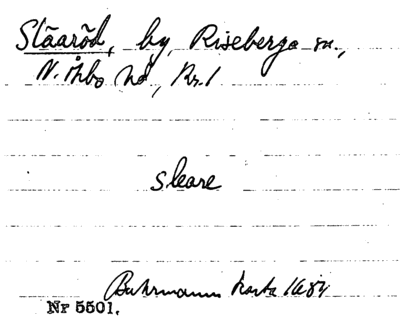 Slãaröd, by, Riseberga sn.,
N. Åsbo hd, Kr. l
sleare
Buhrmanns karta 1684
Nr 5501.